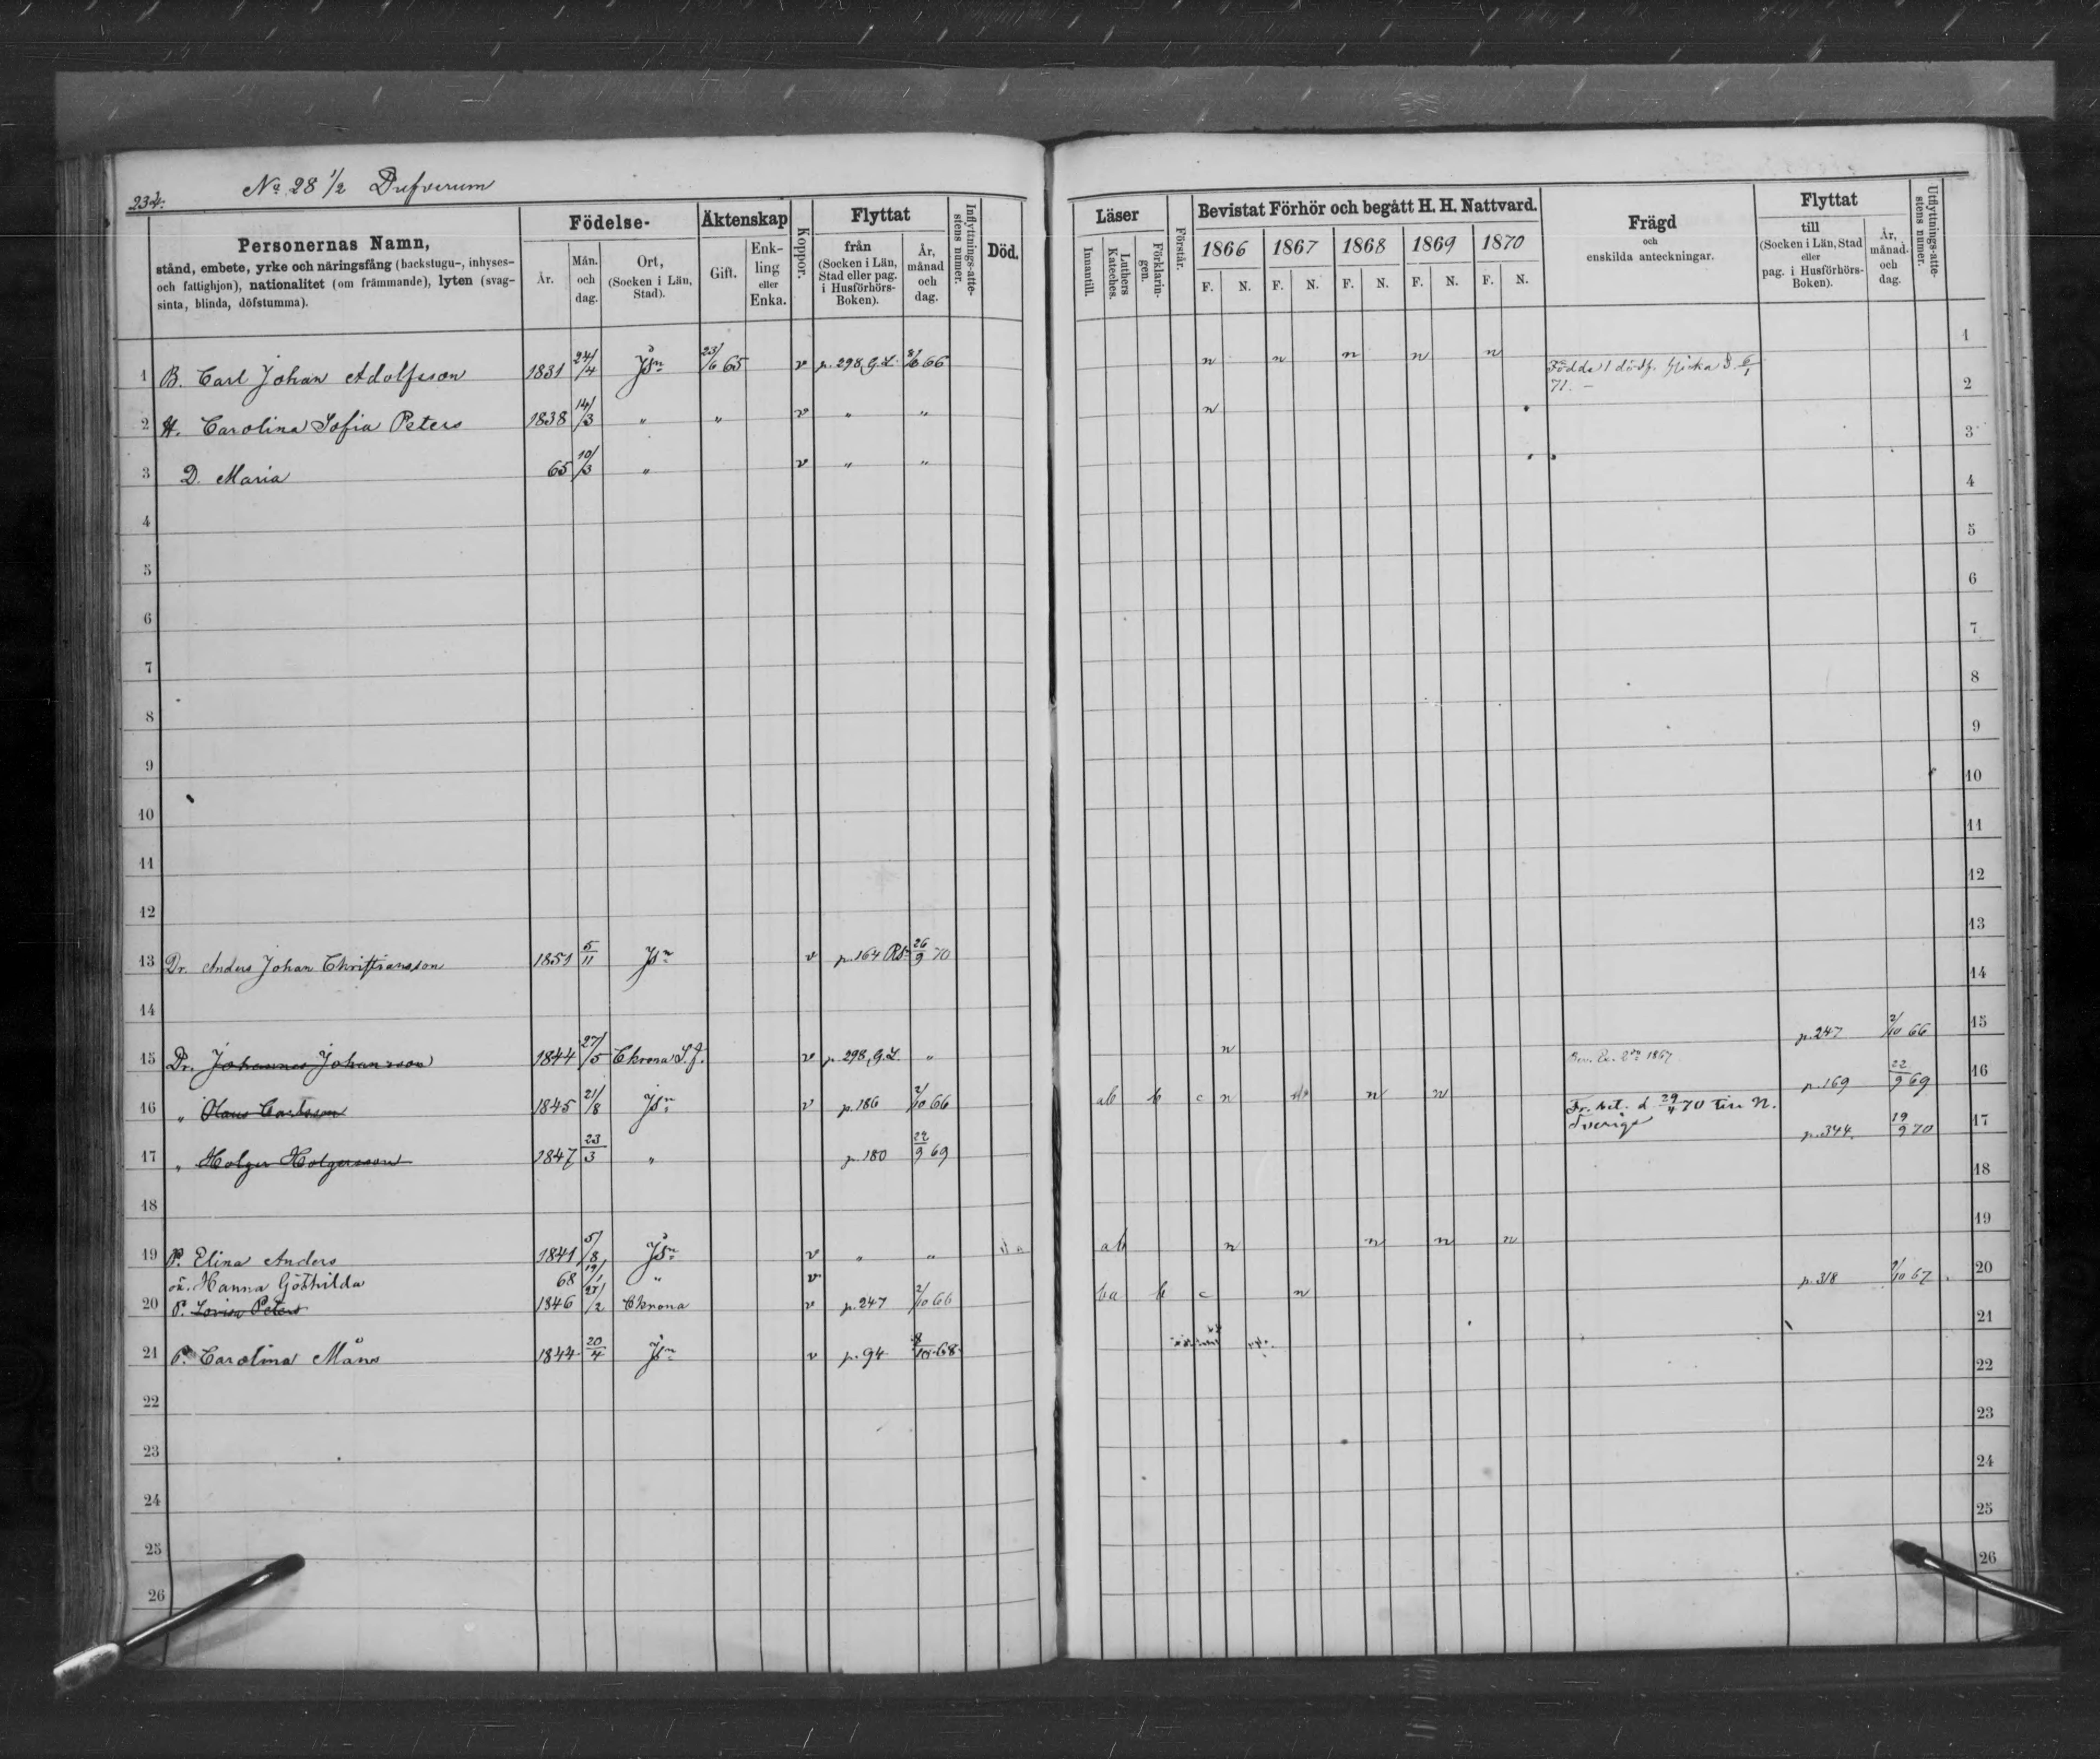 234.
No 28 1/2 Dufverum
Personernas Namn,
stånd, embete, yrke och näringsfång (backstugu-, inhyses-
och fattighjon), nationalitet (om främmande), lyten (svag-
sinta, blinda, döfstumma).
Födelse-
År.
Mån. och dag.
Ort,
(Socken i Län, Stad).
Äktenskap
Gift.
Enk-
ling
eller
Enka.
Koppor.
Flyttat
från
(Socken i Län,
Stad eller pag.
i Husförhörs-
Boken).
År,
månad
och
dag.
Inflyttnings-atte-
stens numer.
Död.
Läser
Innantill.
Luthers
Kateches.
Förklarin-
gen.
Förstår.
Bevistat Förhör och begått H. H. Nattvard.
1866 1867 1868 1869 1870
F. N. F. N. F. N. F. N. F. N.
Frägd
och
enskilda anteckningar.
Flyttat
till
(Socken i Län, Stad
eller
pag. i Husförhörs-
Boken).
År,
månad
och
dag.
Utflyttnings-atte-
stens numer.
1 B. Carl Johan Adolfsson 1831 24/4 Jsn 23/6 65 v p. 298, G.L. 66 n n n n n 1
71. —
2 H. Carolina Sofia Peters 1838 14/3 " " v " " n 2
3 D. Maria 65 10/3 " v " " 3
4 4
5 5
6 6
7 7
8 8
9 9
10 10
11 11
12 12
13 Dr. Anders Johan Christiansson 1851 5/11 Jsn v p. 164 26/9 70 13
14 14
15 Dr. Johannes Johansson 1844 27/5 v p. 298, G.L. " n 1867 p. 247 2/10 66 15
16 " Claus Carlsson 1845 21/8 Jsn v p. 186 2/10 66 ab b c n n n Fr. bet. d. 29/4 70 till N. p. 169 22/9 69 16
Sverige
17 " Holger Holgersson 1847 23/3 " p. 180 22/9 69 p. 344. 19/9 70 17
18 18
19 P. Elina Anders 1841 5/8 Jsn v " " ab n n n n 19
Hanna Göthilda 68 19/1 " v
20 P. Lovisa Peters 1846 2 Chrona v p. 247 2/10 66 ba b c n p. 318 10 67 20
21 P. Carolina Måns 1844 20/4 Jsn v p. 94 68 21
22 22
23 23
24 24
25 25
26 26